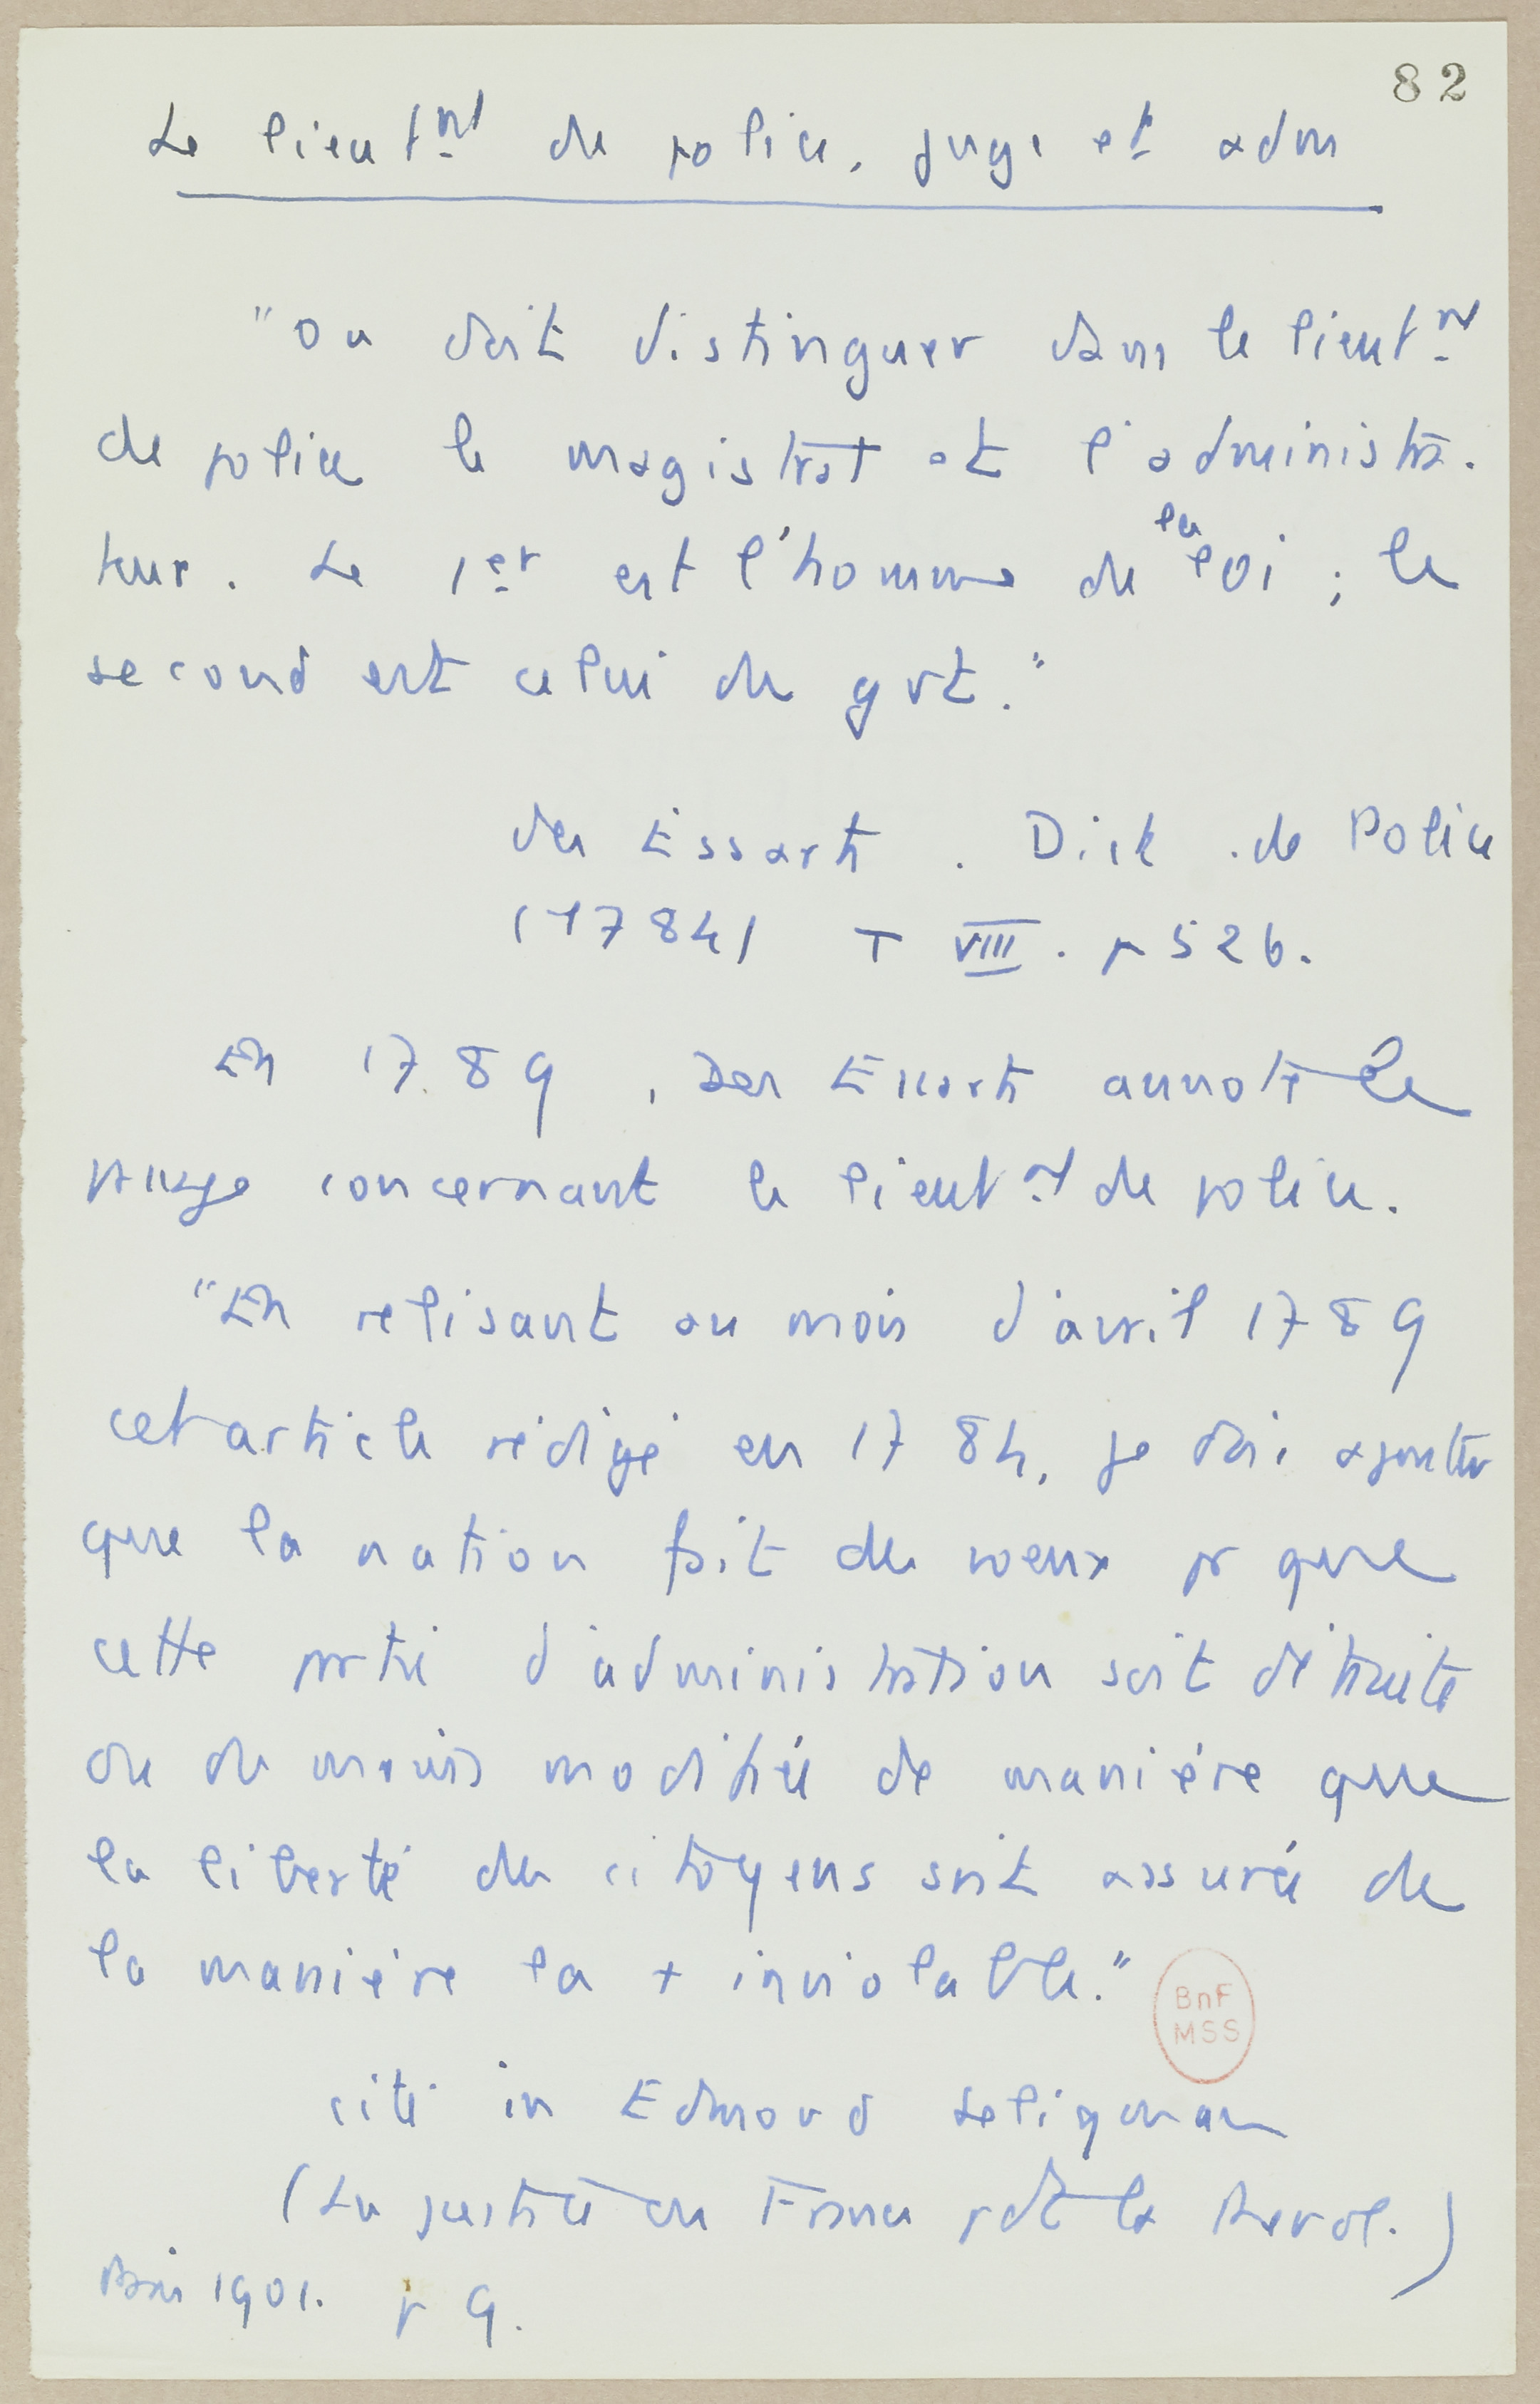 82
Le lieut^nt de police, juge et adm
"On doit distinguer dans le lieut^nt
de police le magistrat et l'administra-
teur. Le 1er est l'homme de la loi ; le
second est celui du gvt."
des Essarts. Dict. de Police
(1784) T VIII. p 526.
En 1789, Des Essarts annote le
passage concernant le lieut^nt de police.
"En relisant au mois d'avril 1789
cet article rédigé en 1784, je dois ajouter
que la nation fait des voeux pr que
cette partie d'administration soit détruite
ou du moins modifiée de manière que
la liberté des citoyens soit assurée de
la manière la + inviolable."
BnF
MSS
cité in Edmond Seligman
(La justice en France pdt la Revol.)
Paris 1901. p 9.